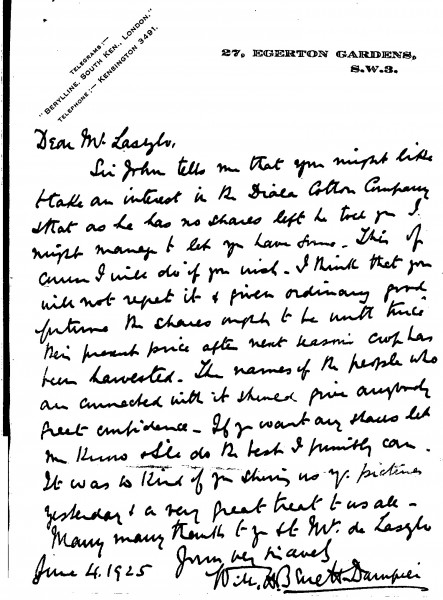 TELEGRAMS:—
"BERYLLINE, SOUTH KEN., LONDON."
TELEPHONE:— KENSINGTON 3491.
27, EGERTON GARDENS,
S.W.3.
Dear Mr Laszlo,
Sir John tells me that you might like
to take an interest in the Diala Cotton Company
& that as he has no shares left he told you I
might manage to let you have some. This of
course I will do if you wish. I think that you
will not regret it & given ordinary good
fortune the shares ought to be worth twice
their present price after next seasons crop has
been harvested. The names of the people who
are connected with it should give anybody
great confidence. If you want any shares let
me know & I'll do the best I possibly can.
It was so kind of you showing us yr pictures
yesterday & a very great treat to us all.
Many many thanks to you & Mrs de Laszlo
Yours very sincerely
June 4. 1925